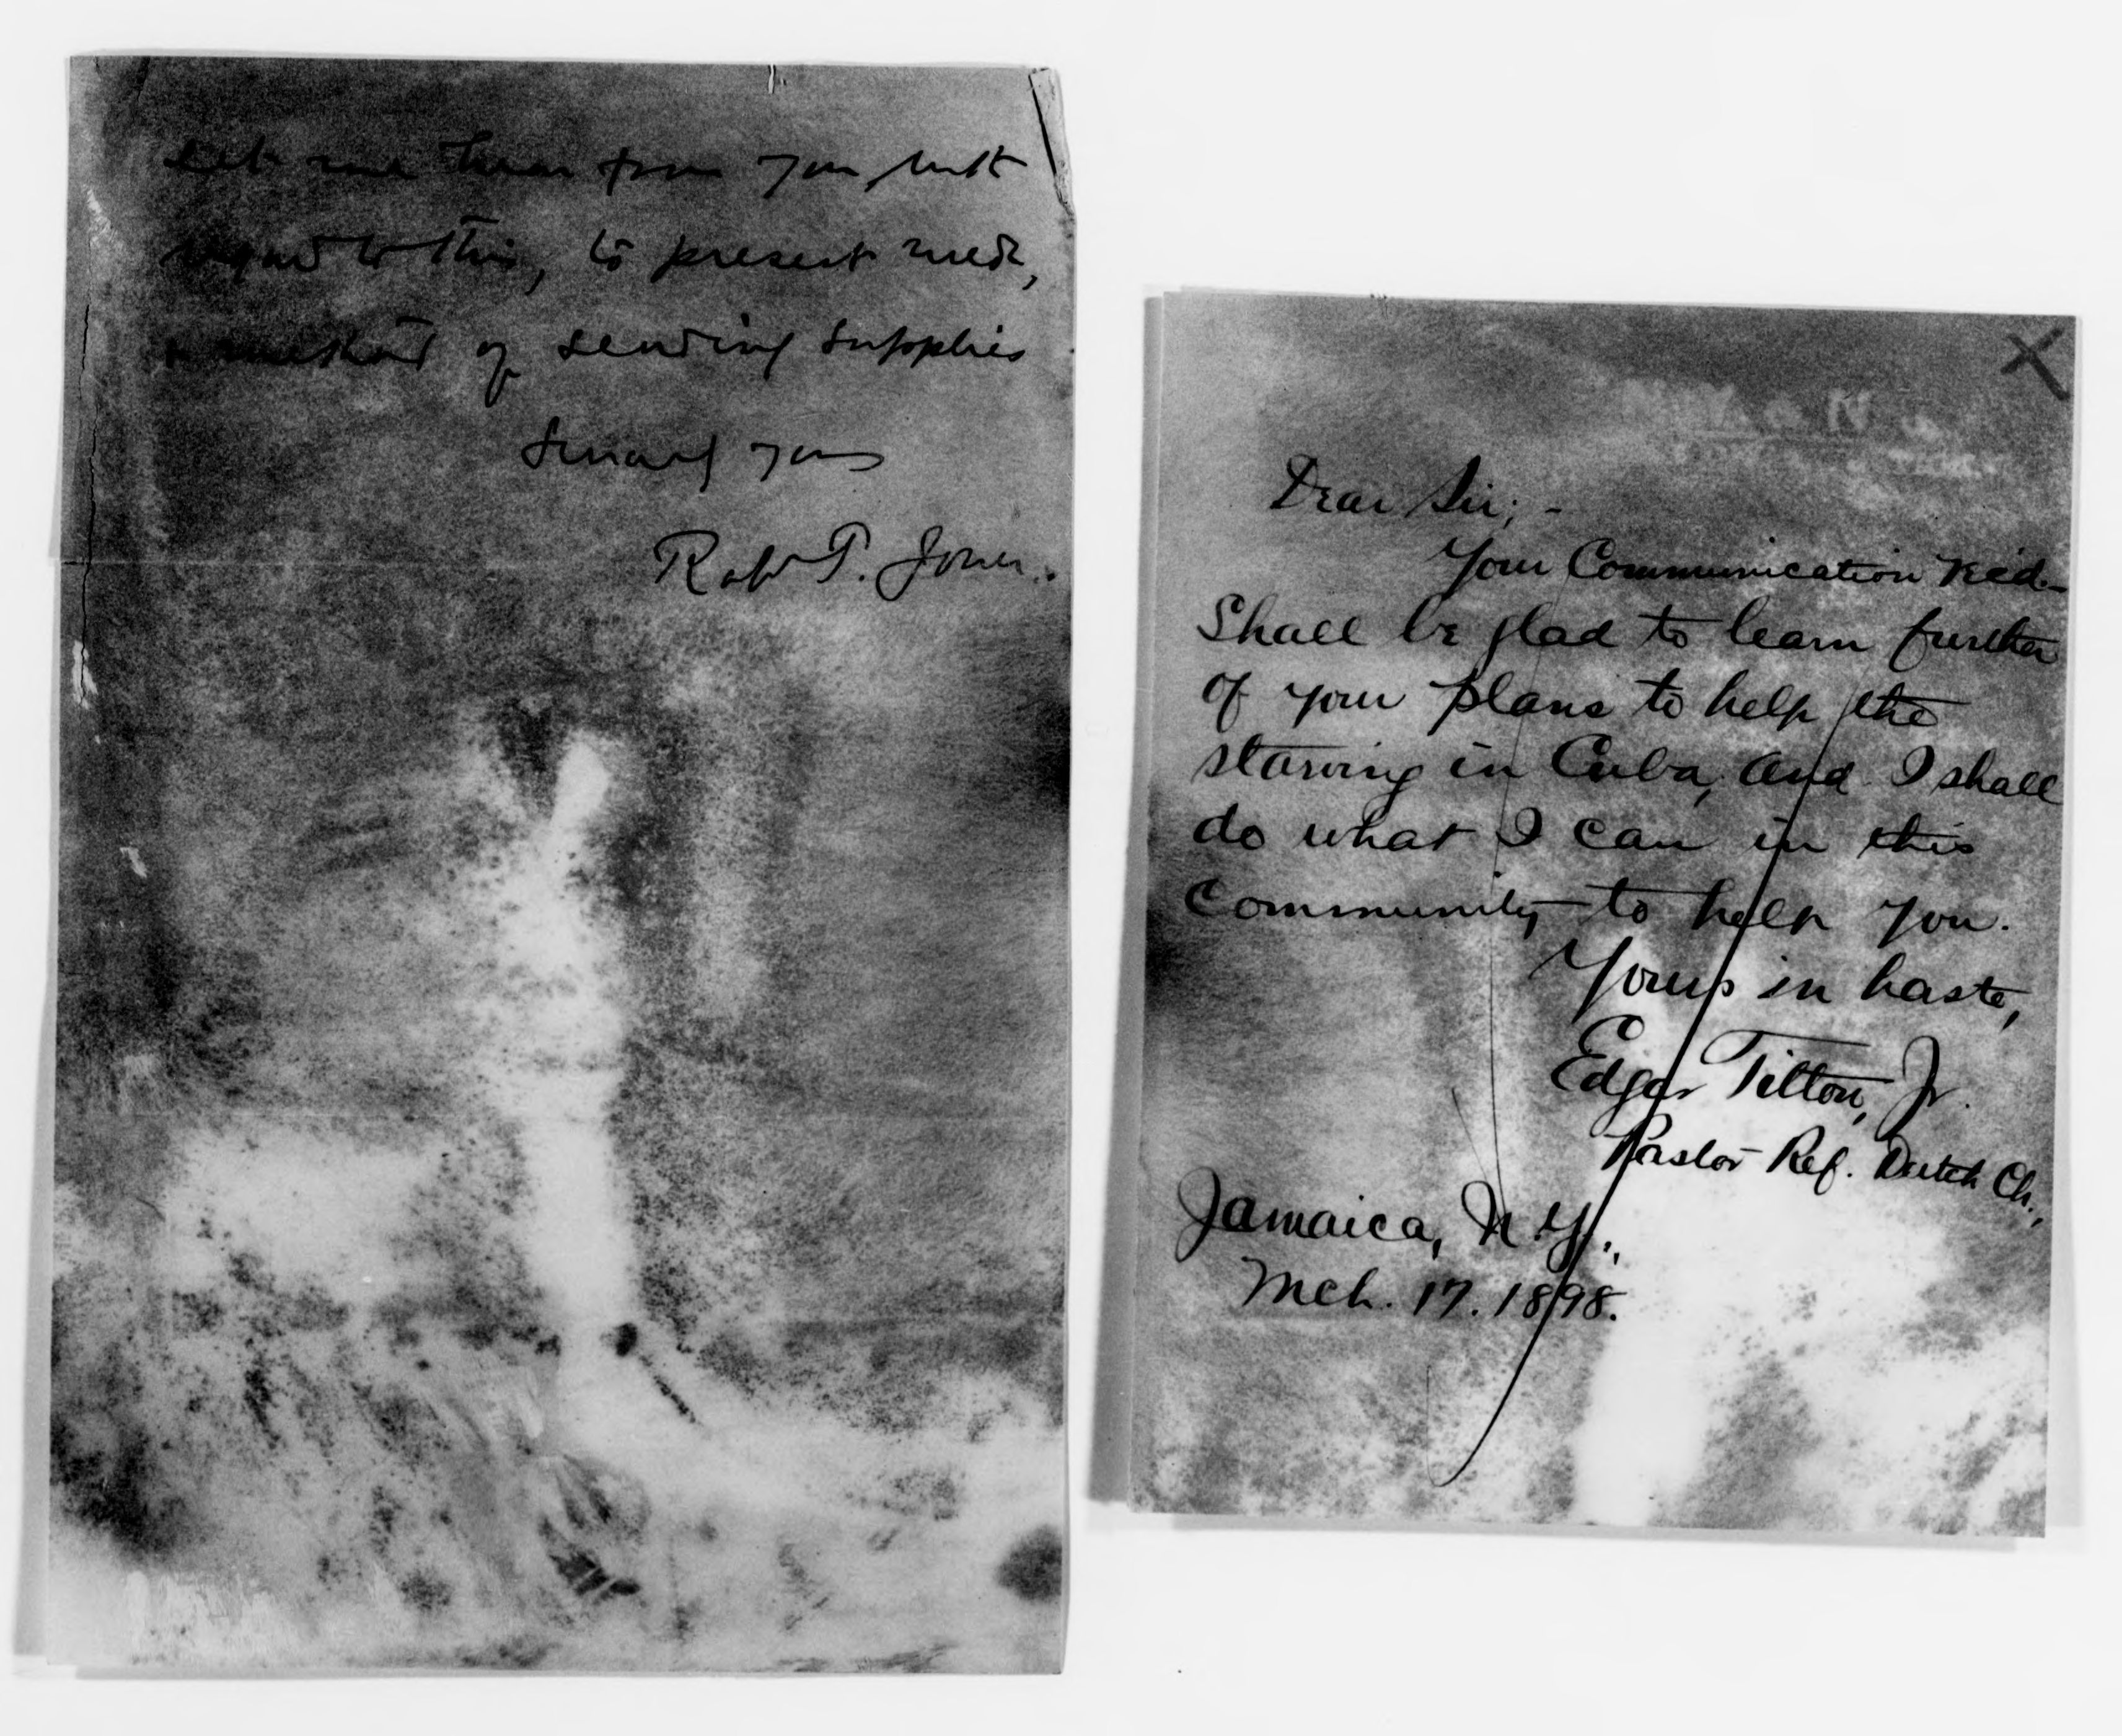 Let me hear from you with
regard to this, to present need,
& method of sending supplies
Sincerely yours
Robt T. Jones.
X
Dear Sir; -
Your Communication rec'd-
Shall be glad to learn further
of your plans to help the
starving in Cuba, and I shall
do what I can in this
Community to help you.
Yours in haste,
Edgar Tilton, Jr.
Pastor Ref. Dutch Ch.,
Jamaica, N.Y.,
Mch. 17. 1898.